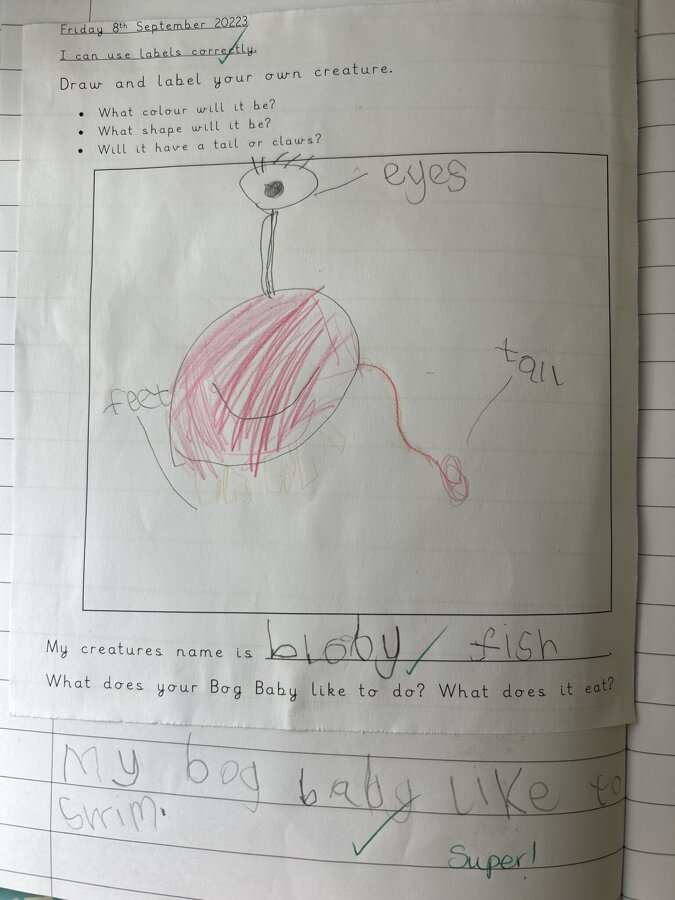 Friday 8th September 20223
I can use labels correctly.
Draw and label your own creature.
• What colour will it be?
• What shape will it be?
• Will it have a tail or claws?
eyes
tail
feet
My creatures name is bloby fish.
What does your Bog Baby like to do? What does it eat?
My bog baby like to
swim.
Super!